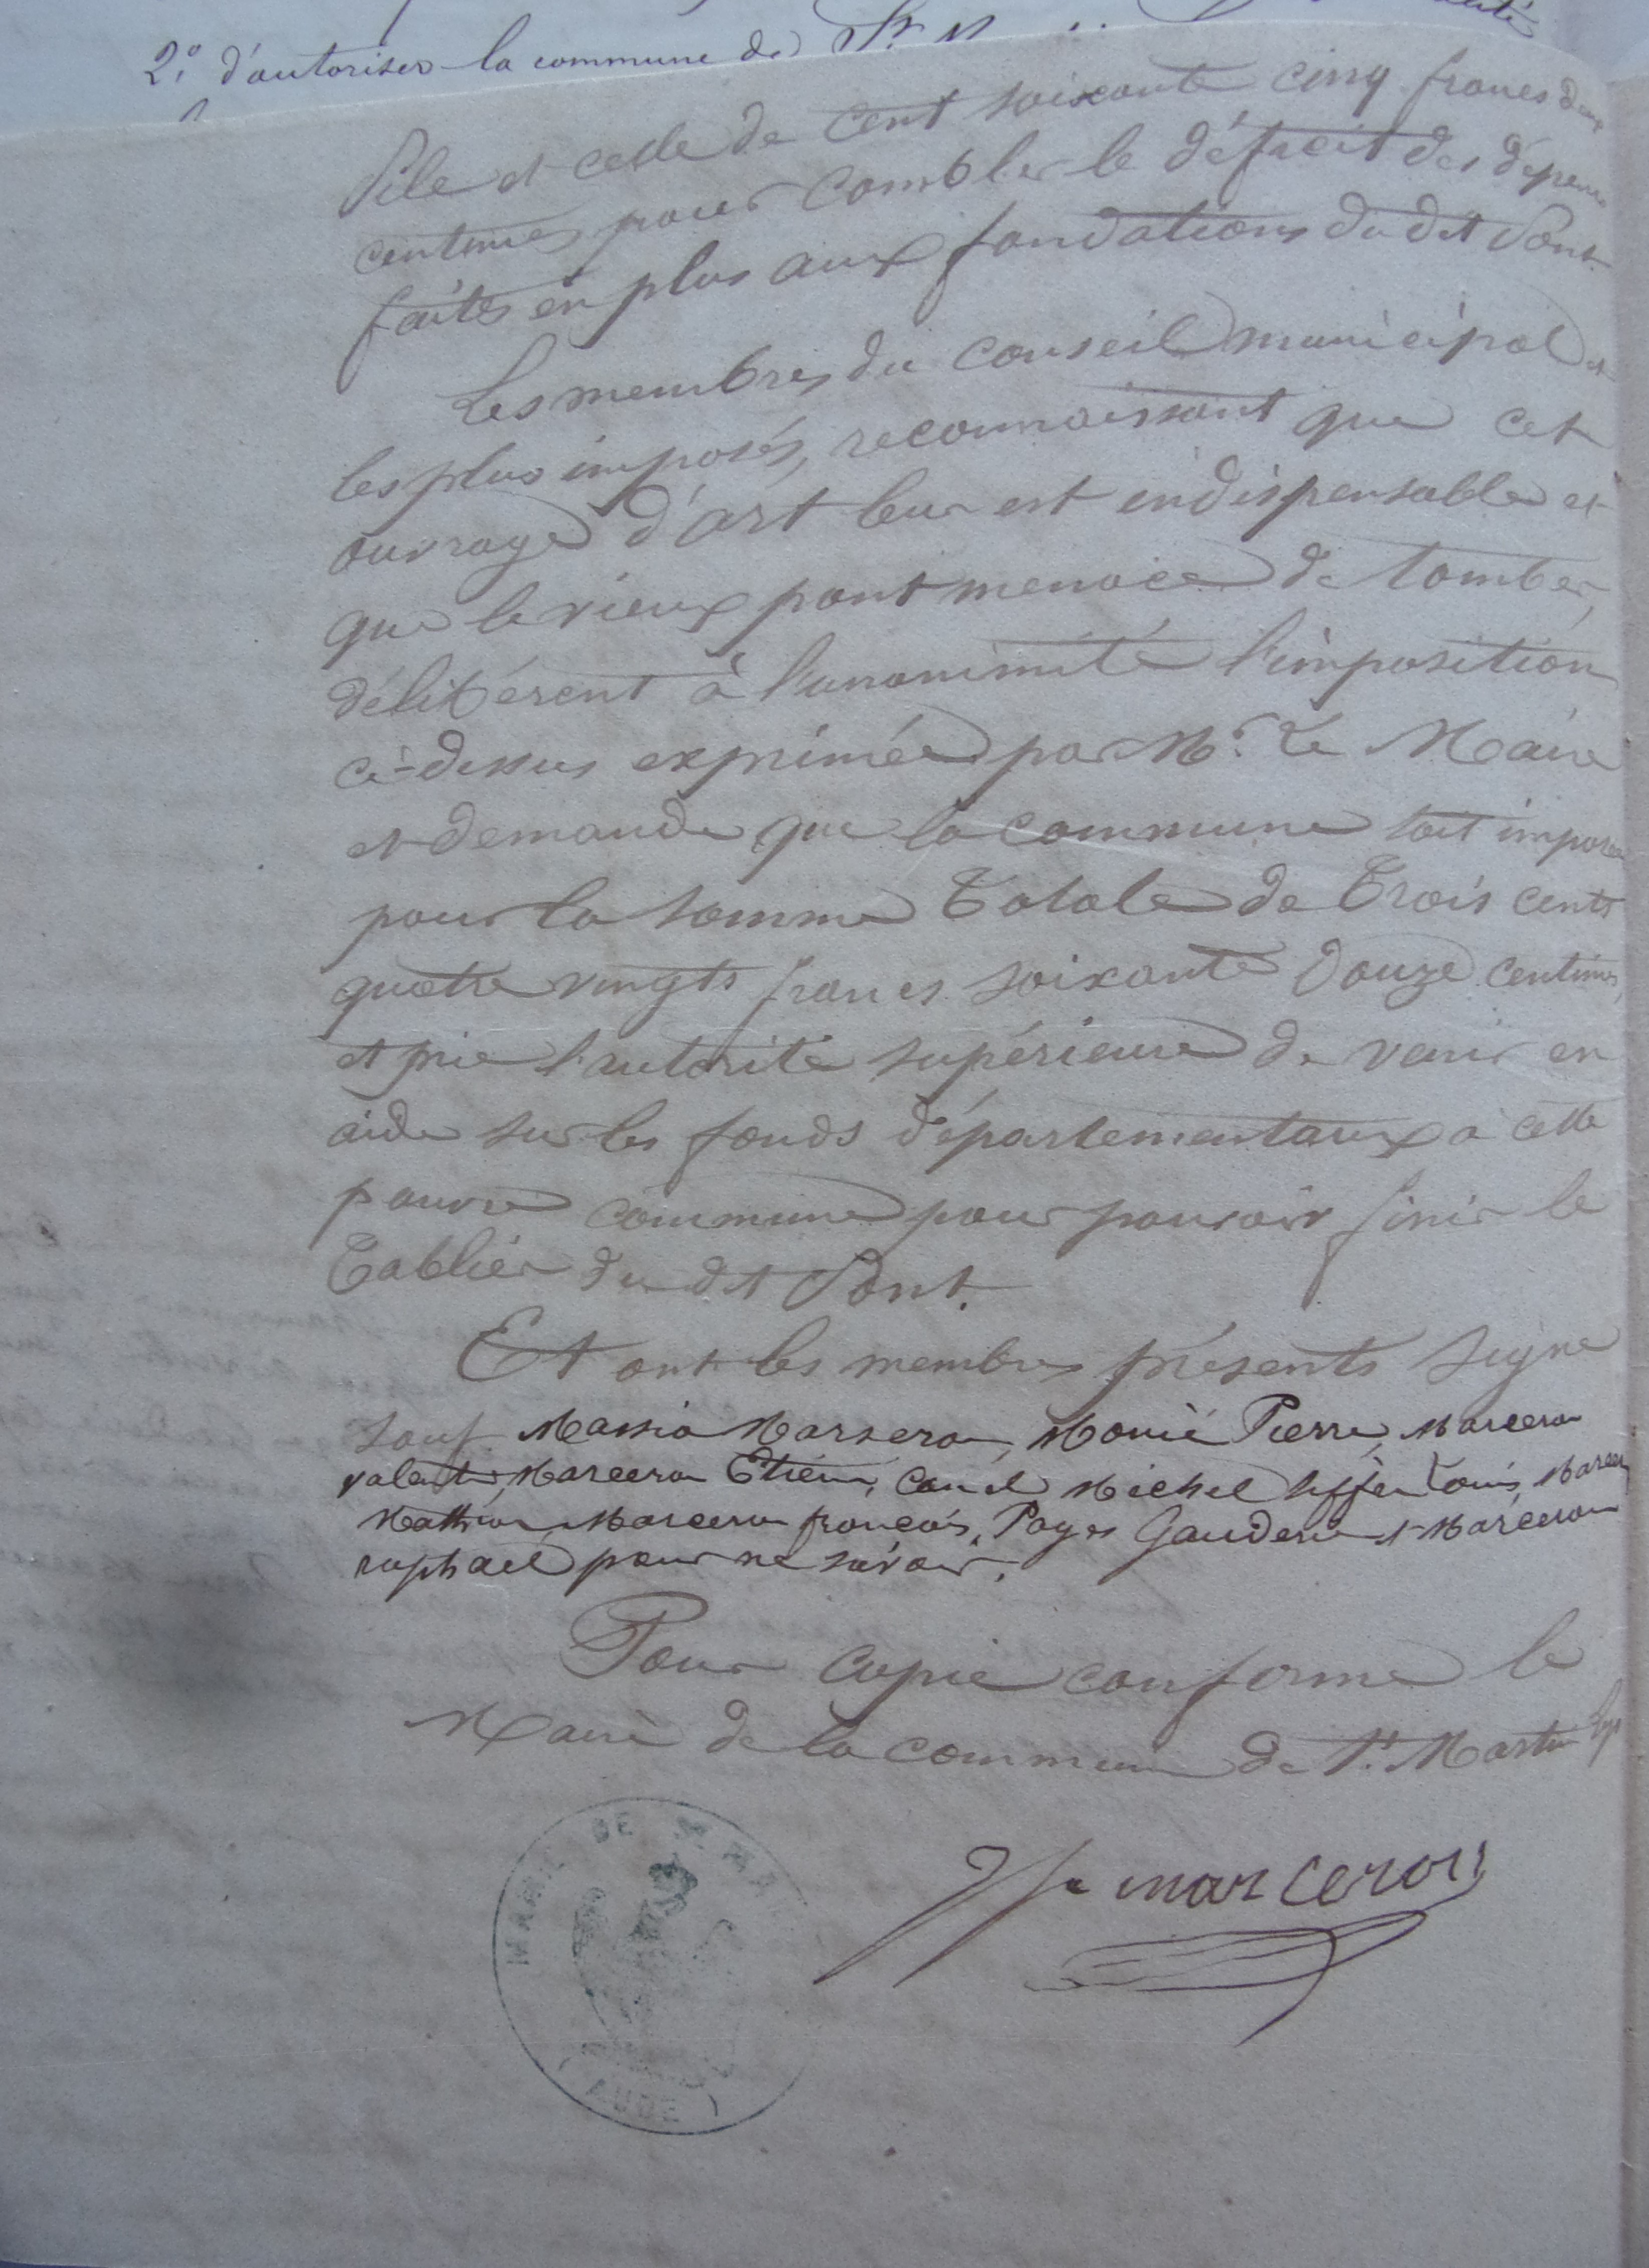 2° d'autoriser la commune de St M
Pile et celle de cent soixante cinq francs deux
centimes pour combler le déficit des dépenses
faites en plus aux fondations du dit Pont.
Les membres du conseil municipal et
les plus imposés, reconnaissant que cet
ouvrage d'art leur est indispensable et
que le vieux pont menace de tomber,
délibèrent à l'unanimité l'imposition
ci-dessus exprimée par Mr. Le Maire
et demande que la commune soit imposée
pour la somme Totale de Trois cents
quatre vingts francs soixante Douze centimes,
et prie l'autorité supérieure de venir en
aide sur les fonds départementaux à cette
pauvre commune pour pouvoir finir le
Tablier du dit Pont.
Et ont les membres présents signé
sauf Marceron, Monié Pierre, Marceron
Marceron Etienne, Michel Louis, Marceron
Marceron françois, Pages Gauderic et Marceron
raphaël pour ne savoir.
Pour copie conforme le
Maire de la commune de St. Martin Lys
marceron
MAIRIE DE ST MA
(AUDE)